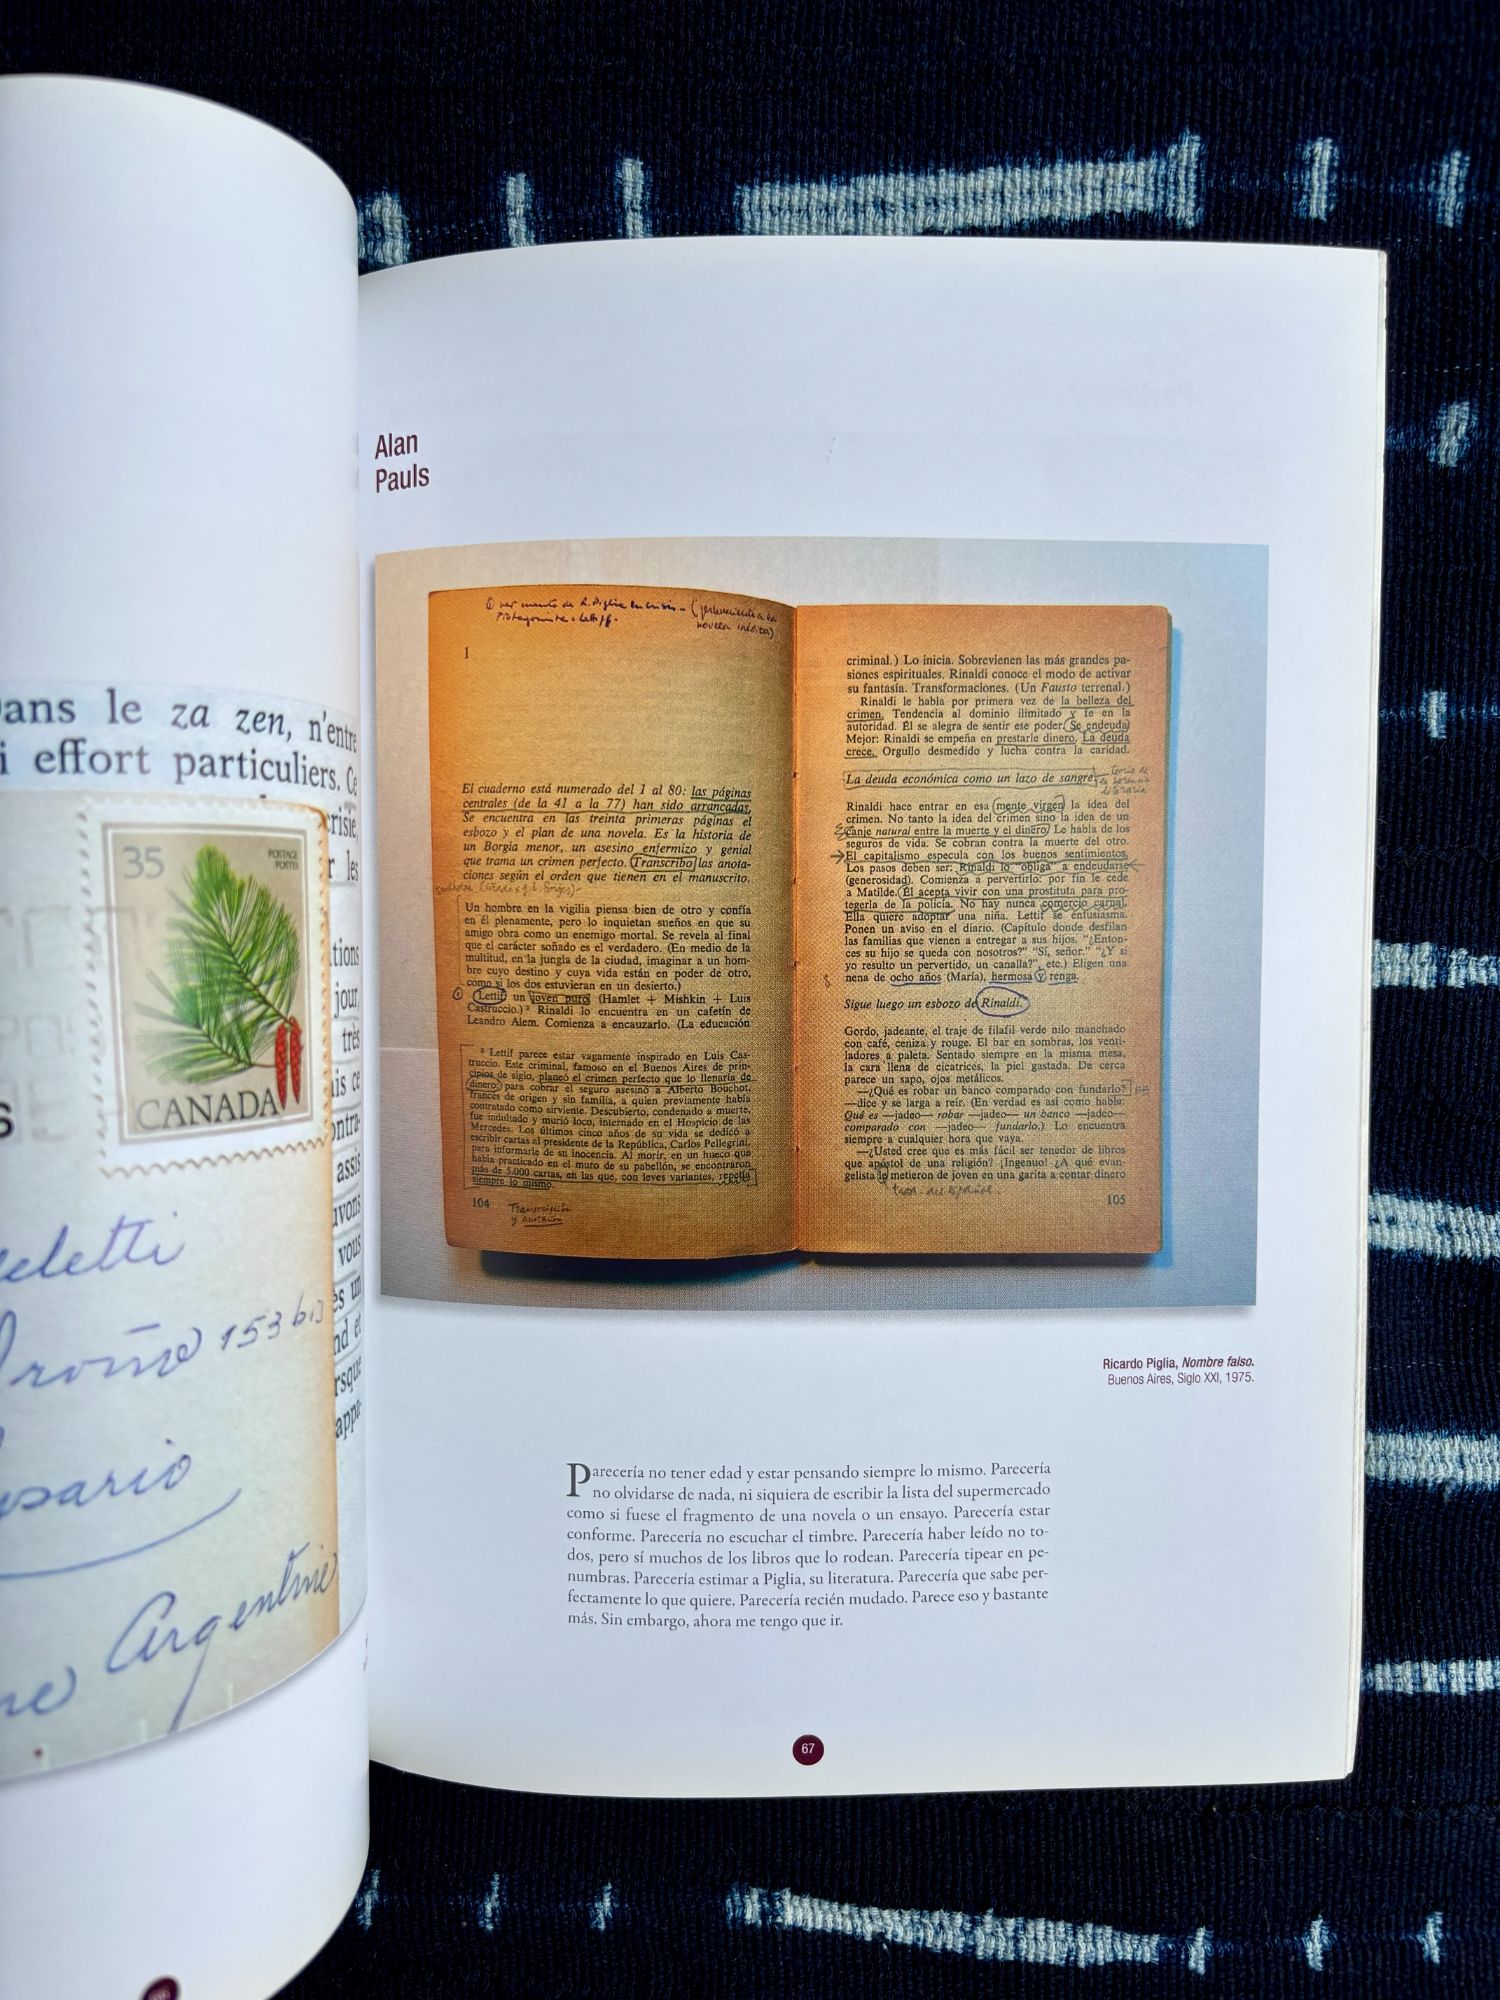 ans le za zen, n'entre
i effort particuliers. Ce
crisie,
r les
ations
jour,
très
ais ce
ontra-
assis
uvons
vous
ès un
nd et
rsque
appa-
35
POSTAGE
POSTES
CANADA
153 bis
Argentine
Alan
Pauls
novela inédita)
1
El cuaderno está numerado del 1 al 80: las páginas
centrales (de la 41 a la 77) han sido arrancadas.
Se encuentra en las treinta primeras páginas el
esbozo y el plan de una novela. Es la historia de
un Borgia menor, un asesino enfermizo y genial
que trama un crimen perfecto. Transcribo las anota-
ciones según el orden que tienen en el manuscrito.
Un hombre en la vigilia piensa bien de otro y confía
en él plenamente, pero lo inquietan sueños en que su
amigo obra como un enemigo mortal. Se revela al final
que el carácter soñado es el verdadero. (En medio de la
multitud, en la jungla de la ciudad, imaginar a un hom-
bre cuyo destino y cuya vida están en poder de otro,
como si los dos estuvieran en un desierto.)
Lettif un joven puro (Hamlet + Mishkin + Luis
Castruccio.)² Rinaldi lo encuentra en un cafetín de
Leandro Alem. Comienza a encauzarlo. (La educación
² Lettif parece estar vagamente inspirado en Luis Cas-
truccio. Este criminal, famoso en el Buenos Aires de prin-
cipios de siglo, planeó el crimen perfecto que lo llenaría de
dinero: para cobrar el seguro asesinó a Alberto Bouchot,
francés de origen y sin familia, a quien previamente había
contratado como sirviente. Descubierto, condenado a muerte,
fue indultado y murió loco, internado en el Hospicio de las
Mercedes. Los últimos cinco años de su vida se dedicó a
escribir cartas al presidente de la República, Carlos Pellegrini,
para informarle de su inocencia. Al morir, en un hueco que
había practicado en el muro de su pabellón, se encontraron
más de 5.000 cartas, en las que, con leves variantes, repetía
siempre lo mismo.
104
Transcripción
y anotación
criminal.) Lo inicia. Sobrevienen las más grandes pa-
siones espirituales. Rinaldi conoce el modo de activar
su fantasía. Transformaciones. (Un Fausto terrenal.)
Rinaldi le habla por primera vez de la belleza del
crimen. Tendencia al dominio ilimitado y fe en la
autoridad. Él se alegra de sentir ese poder. Se endeuda.
Mejor: Rinaldi se empeña en prestarle dinero. La deuda
crece. Orgullo desmedido y lucha contra la caridad.
La deuda económica como un lazo de sangre.
teoría de
la herencia
literaria
Rinaldi hace entrar en esa mente virgen la idea del
crimen. No tanto la idea del crimen sino la idea de un
canje natural entre la muerte y el dinero. Le habla de los
seguros de vida. Se cobran contra la muerte del otro.
El capitalismo especula con los buenos sentimientos.
Los pasos deben ser: Rinaldi lo "obliga" a endeudarse
(generosidad). Comienza a pervertirlo: por fin le cede
a Matilde. Él acepta vivir con una prostituta para pro-
tegerla de la policía. No hay nunca comercio carnal.
Ella quiere adoptar una niña. Lettif se entusiasma.
Ponen un aviso en el diario. (Capítulo donde desfilan
las familias que vienen a entregar a sus hijos. "¿Enton-
ces su hijo se queda con nosotros?" "Sí, señor." "¿Y si
yo resulto un pervertido, un canalla?", etc.) Eligen una
nena de ocho años (María), hermosa y renga.
Sigue luego un esbozo de Rinaldi.
Gordo, jadeante, el traje de filafil verde nilo manchado
con café, ceniza y rouge. El bar en sombras, los venti-
ladores a paleta. Sentado siempre en la misma mesa,
la cara llena de cicatrices, la piel gastada. De cerca
parece un sapo, ojos metálicos.
—¿Qué es robar un banco comparado con fundarlo?
—dice y se larga a reír. (En verdad es así como habla:
Qué es —jadeo— robar —jadeo— un banco —jadeo—
comparado con —jadeo— fundarlo.) Lo encuentra
siempre a cualquier hora que vaya.
—¿Usted cree que es más fácil ser tenedor de libros
que apóstol de una religión? ¡Ingenuo! ¿A qué evan-
gelista le metieron de joven en una garita a contar dinero
trad. del español.
105
Ricardo Piglia, Nombre falso.
Buenos Aires, Siglo XXI, 1975.
Parecería no tener edad y estar pensando siempre lo mismo. Parecería
no olvidarse de nada, ni siquiera de escribir la lista del supermercado
como si fuese el fragmento de una novela o un ensayo. Parecería estar
conforme. Parecería no escuchar el timbre. Parecería haber leído no to-
dos, pero sí muchos de los libros que lo rodean. Parecería tipear en pe-
numbras. Parecería estimar a Piglia, su literatura. Parecería que sabe per-
fectamente lo que quiere. Parecería recién mudado. Parece eso y bastante
más. Sin embargo, ahora me tengo que ir.
67